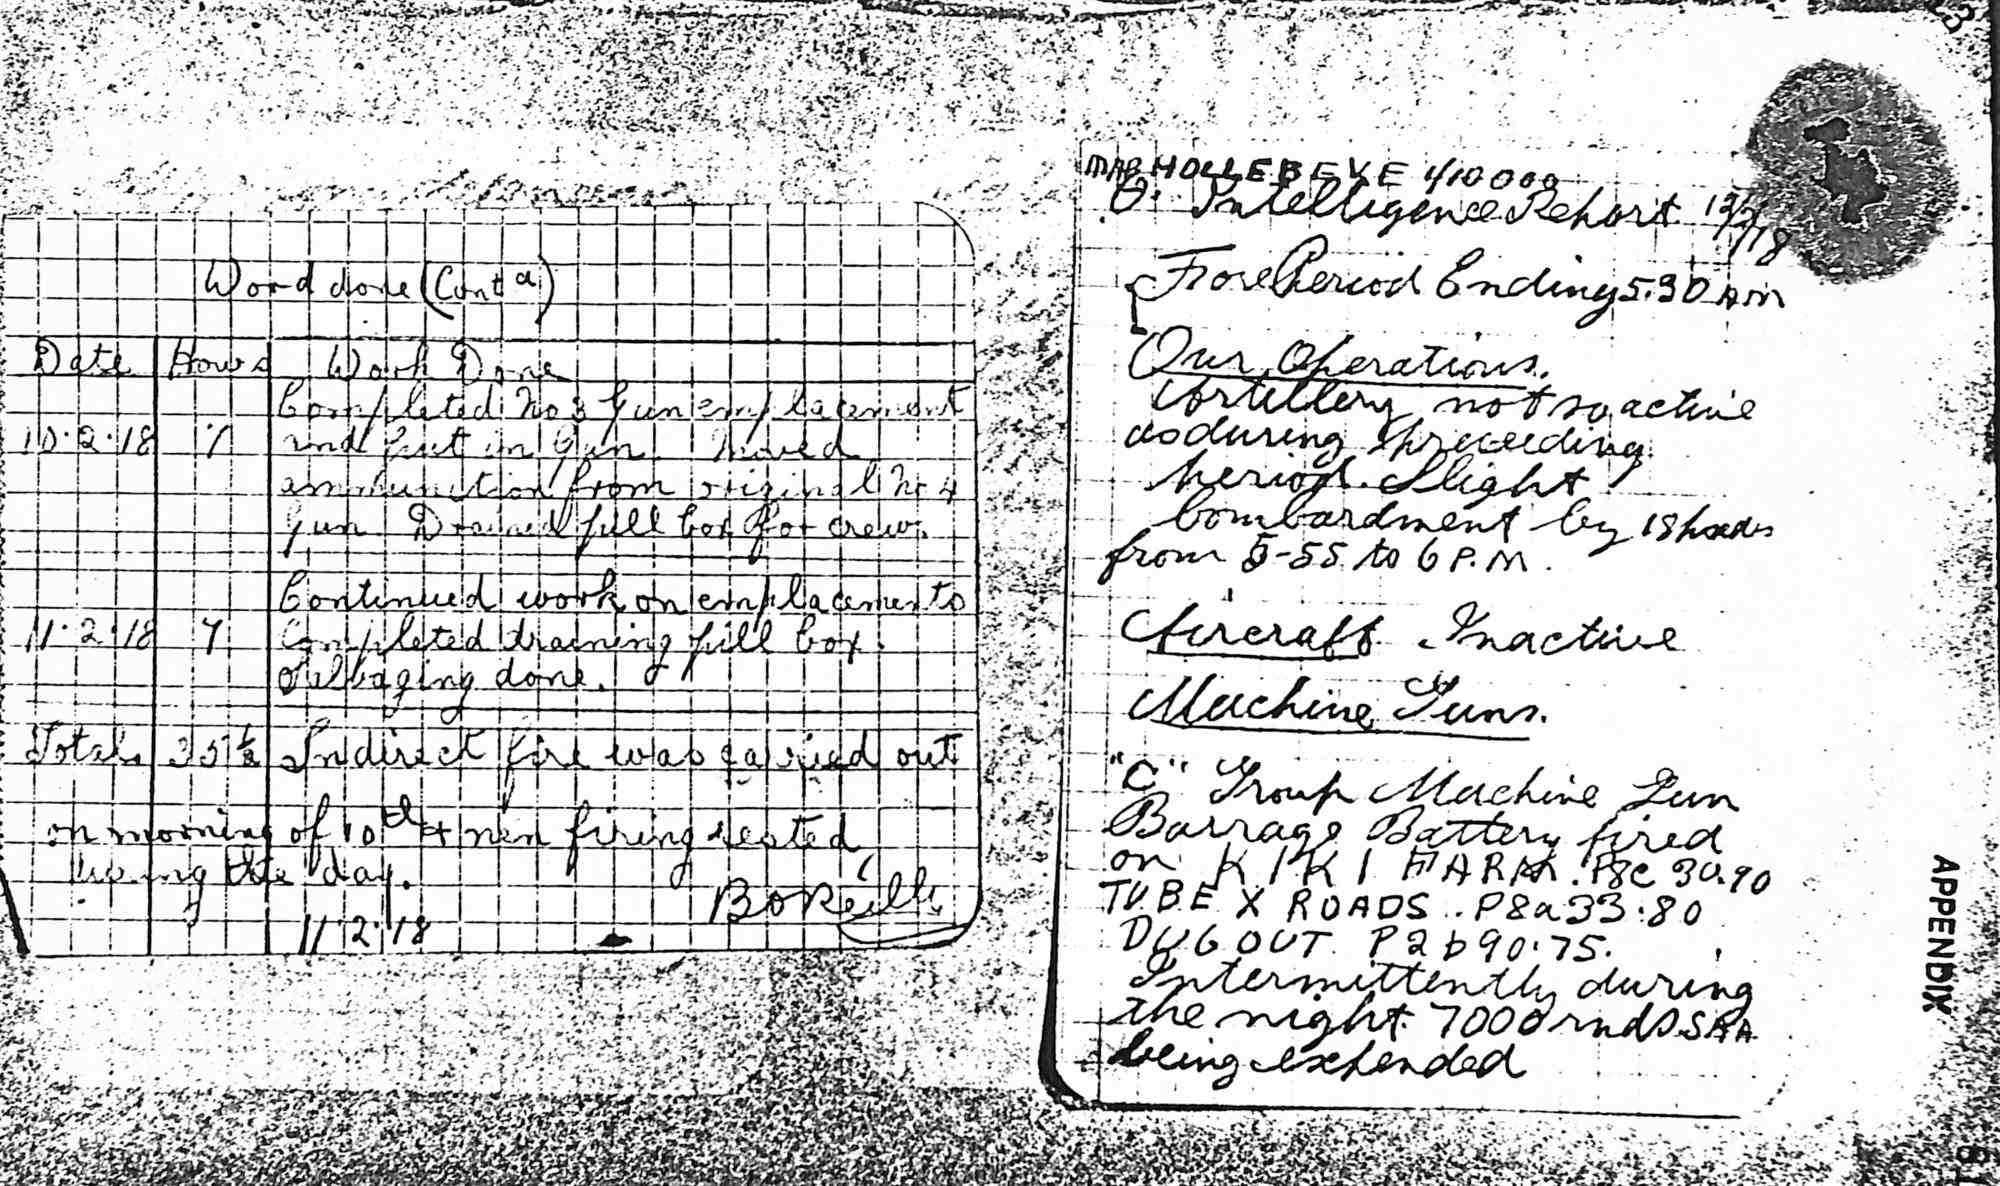 Word done (Contd)
Date Hours Work Done
Completed No 3 Gun emplacement
10.2.18 7 and put in Gun. Moved
ammunition from original No 4
Gun Drained pill box for crew.
Continued work on emplacements
11.2.18 7 Completed draining pill box.
done.
Total 35½ Indirect fire was carried out
on morning of 10th & men firing rested
during the day.
11.2.18
MAP HOLLEBEKE 1/10000
Intelligence Report 12/2/18
For Period Ending 5.30 AM
Our Operations.
Artillery not so active
as during preceeding
period. Slight
bombardment by 18 pounders
from 5-55 to 6 P.M.
Aircraft. Inactive
Machine Guns.
"C" Group Machine Gun
Barrage Battery fired
on KIKI FARM. P8c 30.90
TUBE X ROADS. P8a 33.80
DUGOUT P2b 90.75.
Intermittently during
the night. 7000 rnds. SAA
being expended
APPENDIX